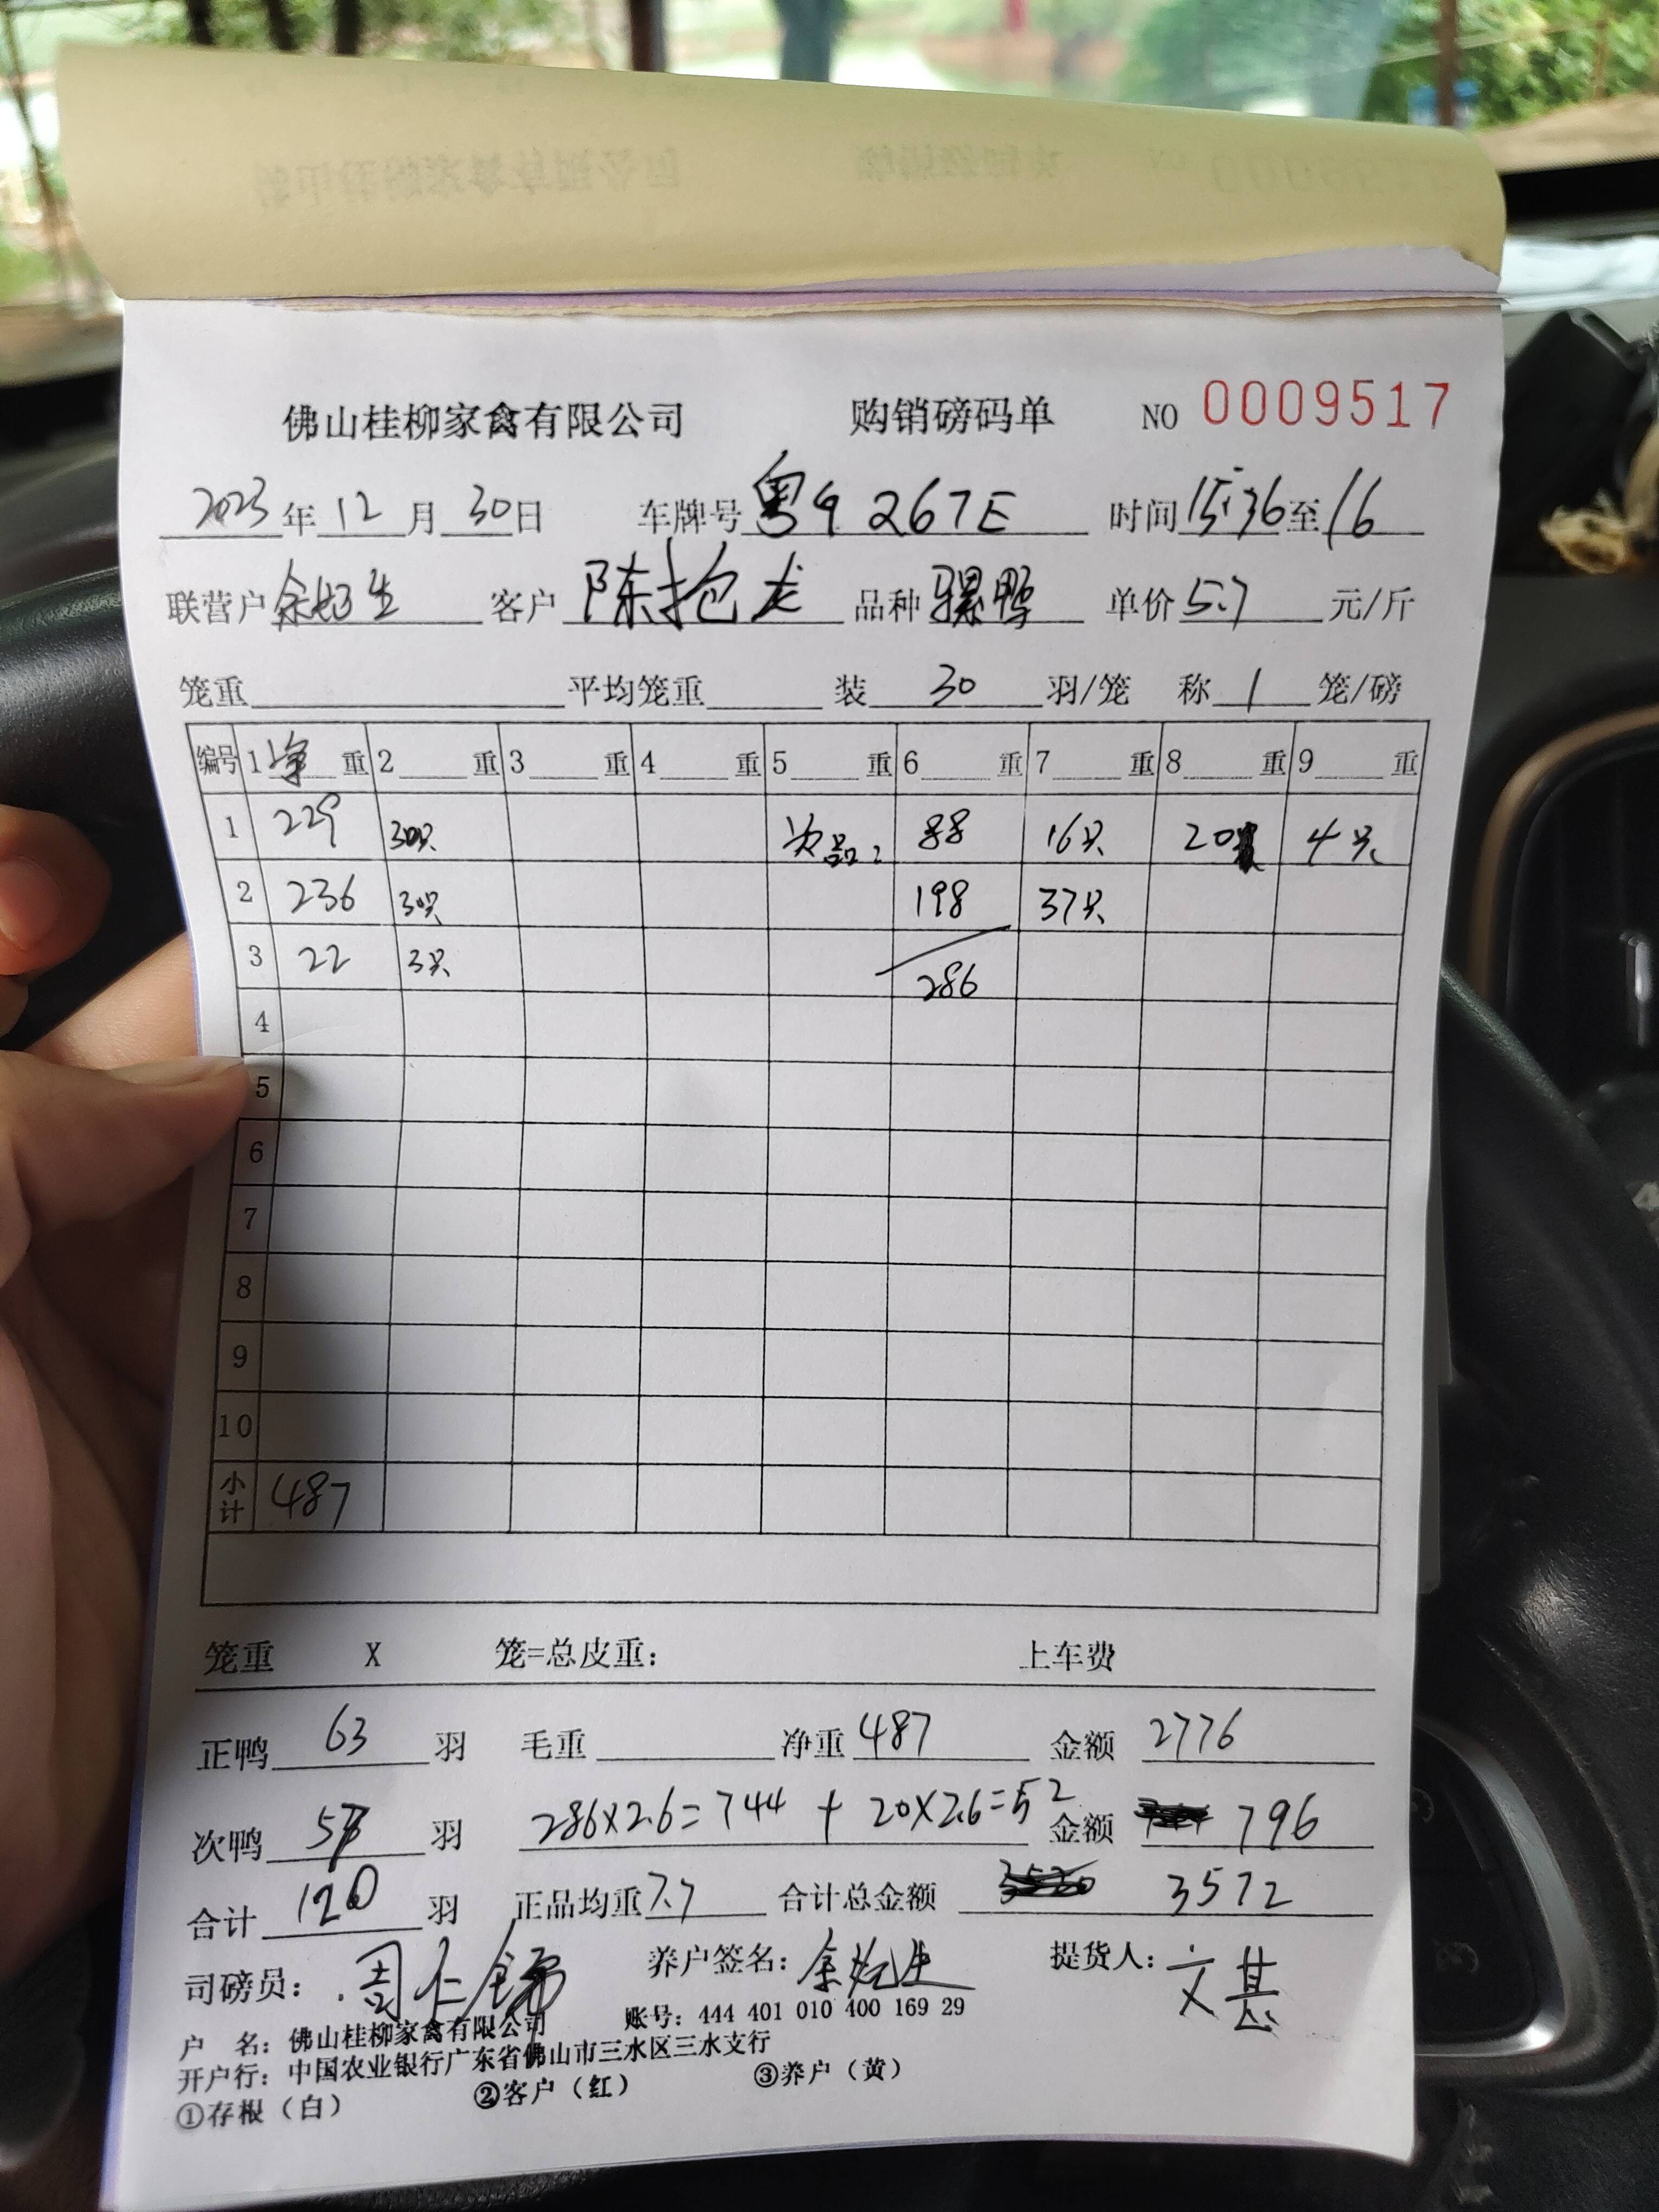 佛山桂柳家禽有限公司 购销磅码单 NO 0009517
2023年12月30日 车牌号 粤Q 267E 时间15:36至16
联营户 余 生 客户 陈抱龙 品种 骡鸭 单价5.7 元/斤
笼重 平均笼重 装 30 羽/笼 称 1 笼/磅
编号 1净重 2 重 3 重 4 重 5 重 6 重 7 重 8 重 9 重
1 229 30只 次品: 88 16只 20 4只
2 236 30只 198 37只
3 22 3只 286
4
5
6
7
8
9
10
小计 487
笼重 X 笼=总皮重: 上车费
正鸭 63 羽 毛重 净重 487 金额 2776
次鸭 57 羽 286×2.6=744 + 20×2.6=52 金额 796
合计 120 羽 正品均重7.7 合计总金额 3572
司磅员: 周仁锦 养户签名: 余 生 提货人: 文甚
户 名: 佛山桂柳家禽有限公司 账号: 444 401 010 400 169 29
开户行: 中国农业银行广东省佛山市三水区三水支行
①存根（白） ②客户（红） ③养户（黄）